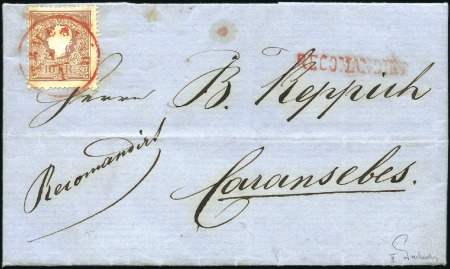 RECOMANDIRT
Herrn B. Keppich
Recomandirt
Caransebes.